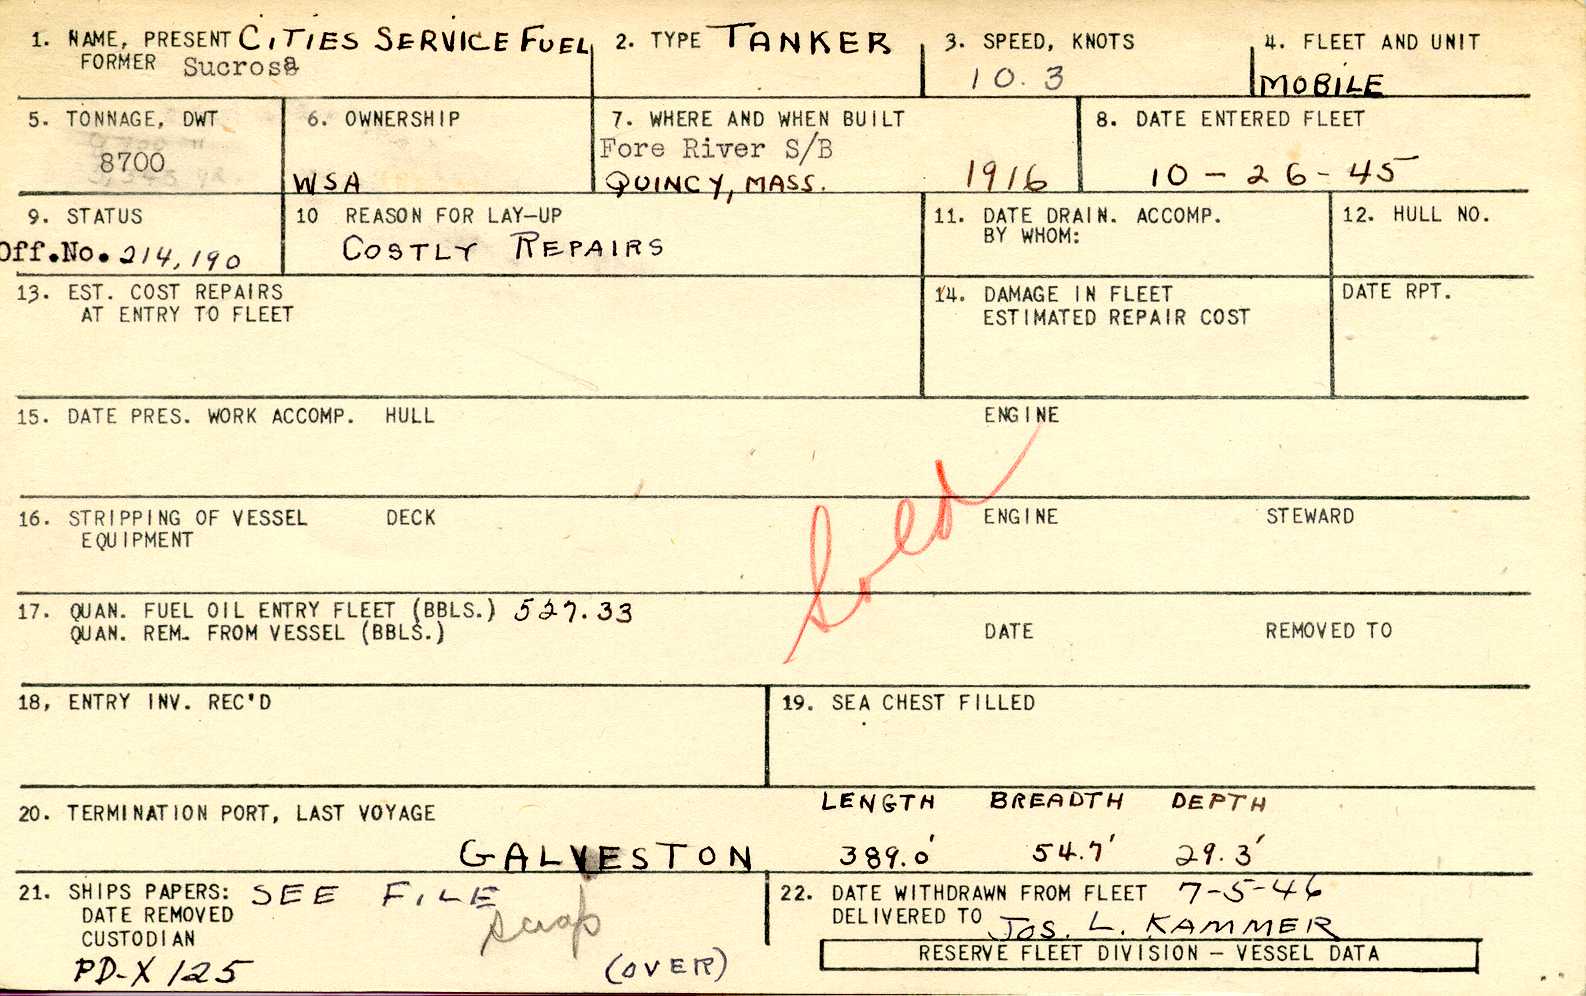 1. NAME, PRESENT CITIES SERVICE FUEL
FORMER Sucrosa
2. TYPE TANKER
3. SPEED, KNOTS
10.3
4. FLEET AND UNIT
MOBILE
5. TONNAGE, DWT
8700
6. OWNERSHIP
WSA
7. WHERE AND WHEN BUILT
Fore River S/B
QUINCY, MASS. 1916
8. DATE ENTERED FLEET
10-26-45
9. STATUS
Off.No. 214,190
10 REASON FOR LAY-UP
COSTLY REPAIRS
11. DATE DRAIN. ACCOMP.
BY WHOM:
12. HULL NO.
13. EST. COST REPAIRS
AT ENTRY TO FLEET
14. DAMAGE IN FLEET
ESTIMATED REPAIR COST
DATE RPT.
15. DATE PRES. WORK ACCOMP. HULL ENGINE
Sold
16. STRIPPING OF VESSEL DECK ENGINE STEWARD
EQUIPMENT
17. QUAN. FUEL OIL ENTRY FLEET (BBLS.) 527.33
QUAN. REM. FROM VESSEL (BBLS.) DATE REMOVED TO
18, ENTRY INV. REC'D
19. SEA CHEST FILLED
20. TERMINATION PORT, LAST VOYAGE
GALVESTON
LENGTH BREADTH DEPTH
389.0' 54.7' 29.3'
21. SHIPS PAPERS: SEE FILE
DATE REMOVED
CUSTODIAN
scrap
PD-X 125
(OVER)
22. DATE WITHDRAWN FROM FLEET 7-5-46
DELIVERED TO JOS. L. KAMMER
RESERVE FLEET DIVISION - VESSEL DATA